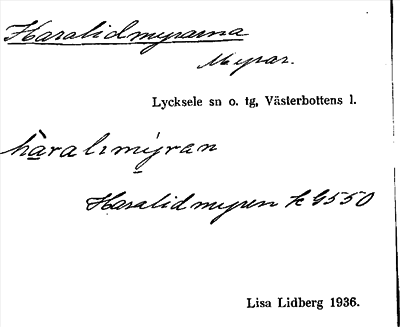 Haralidmyrarna
Myrar.
Lycksele sn o. tg, Västerbottens l.
haralımýran
Haralidmyren k G550
Lisa Lidberg 1936.